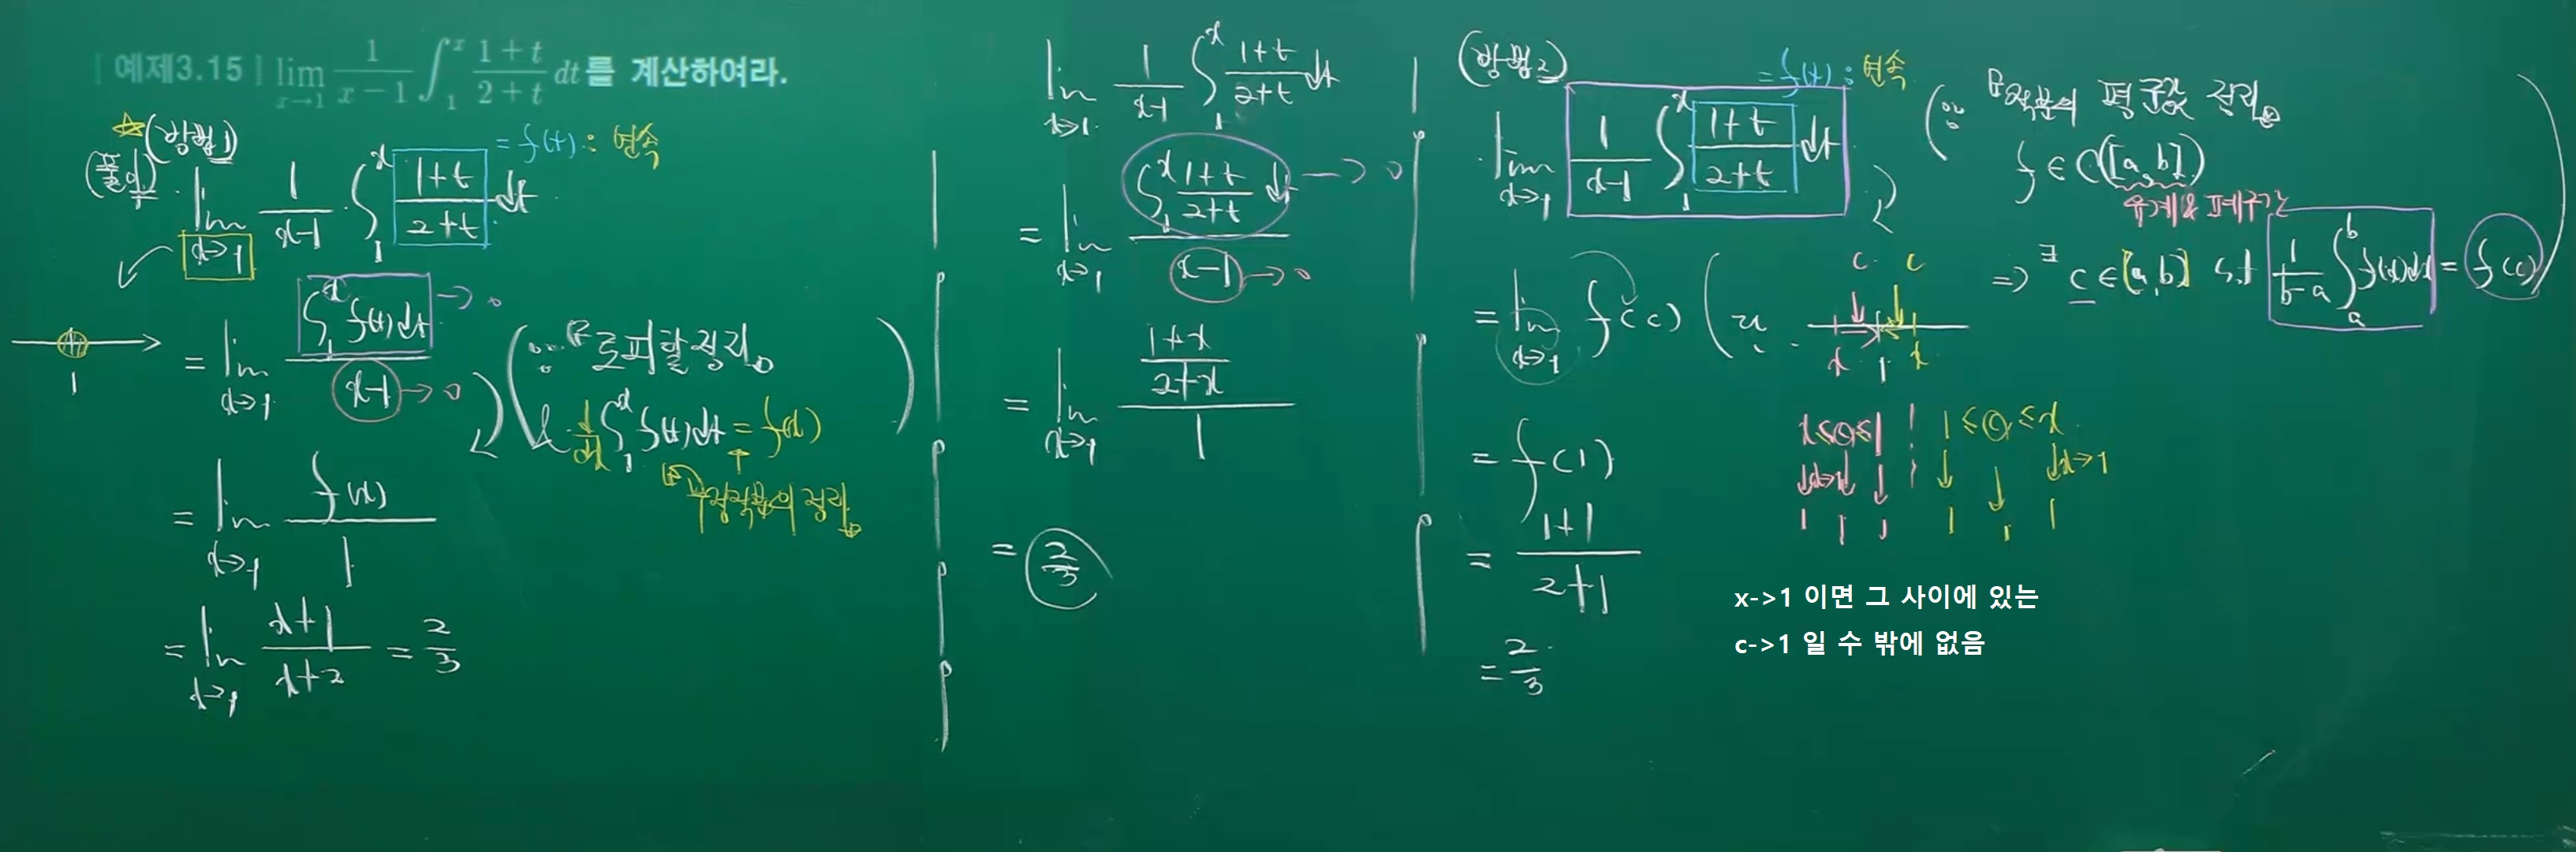 [ 예제3.15 ] lim x→1 1/(x−1) ∫_1^x (1+t)/(2+t) dt를 계산하여라.
☆(방법1)
(풀이)
lim x→1 1/(x-1) · ∫_1^x (1+t)/(2+t) dt
= f(t) : 연속
1
= lim x→1 (∫_1^x f(t)dt)/(x-1)
→ 0
→ 0
(∵ 『로피탈정리』
& d/dx ∫_1^x f(t)dt = f(x))
『미적분의 정리』
= lim x→1 f(x)/1
= lim x→1 (x+1)/(x+2) = 2/3
lim x→1 1/(x-1) ∫_1^x (1+t)/(2+t) dt
= lim x→1 (∫_1^x (1+t)/(2+t) dt)/(x-1)
→ 0
→ 0
= lim x→1 ((1+x)/(2+x))/1
= 2/3
(방법2)
= f(t) : 연속
lim x→1 1/(x-1) ∫_1^x (1+t)/(2+t) dt
(∵ 『적분의 평균값 정리』
f ∈ C([a,b])
유계&폐구간
=> ∃ c ∈ [a,b] s.t 1/(b-a) ∫_a^b f(x)dx = f(c))
= lim x→1 f(c)
c c
x 1 x
= f(1)
x ≤ c ≤ 1 1 ≤ c ≤ x
↓x→1 ↓ ↓ ↓ ↓ ↓x→1
1 1 1 1 1 1
= (1+1)/(2+1)
= 2/3
x->1 이면 그 사이에 있는
c->1 일 수 밖에 없음